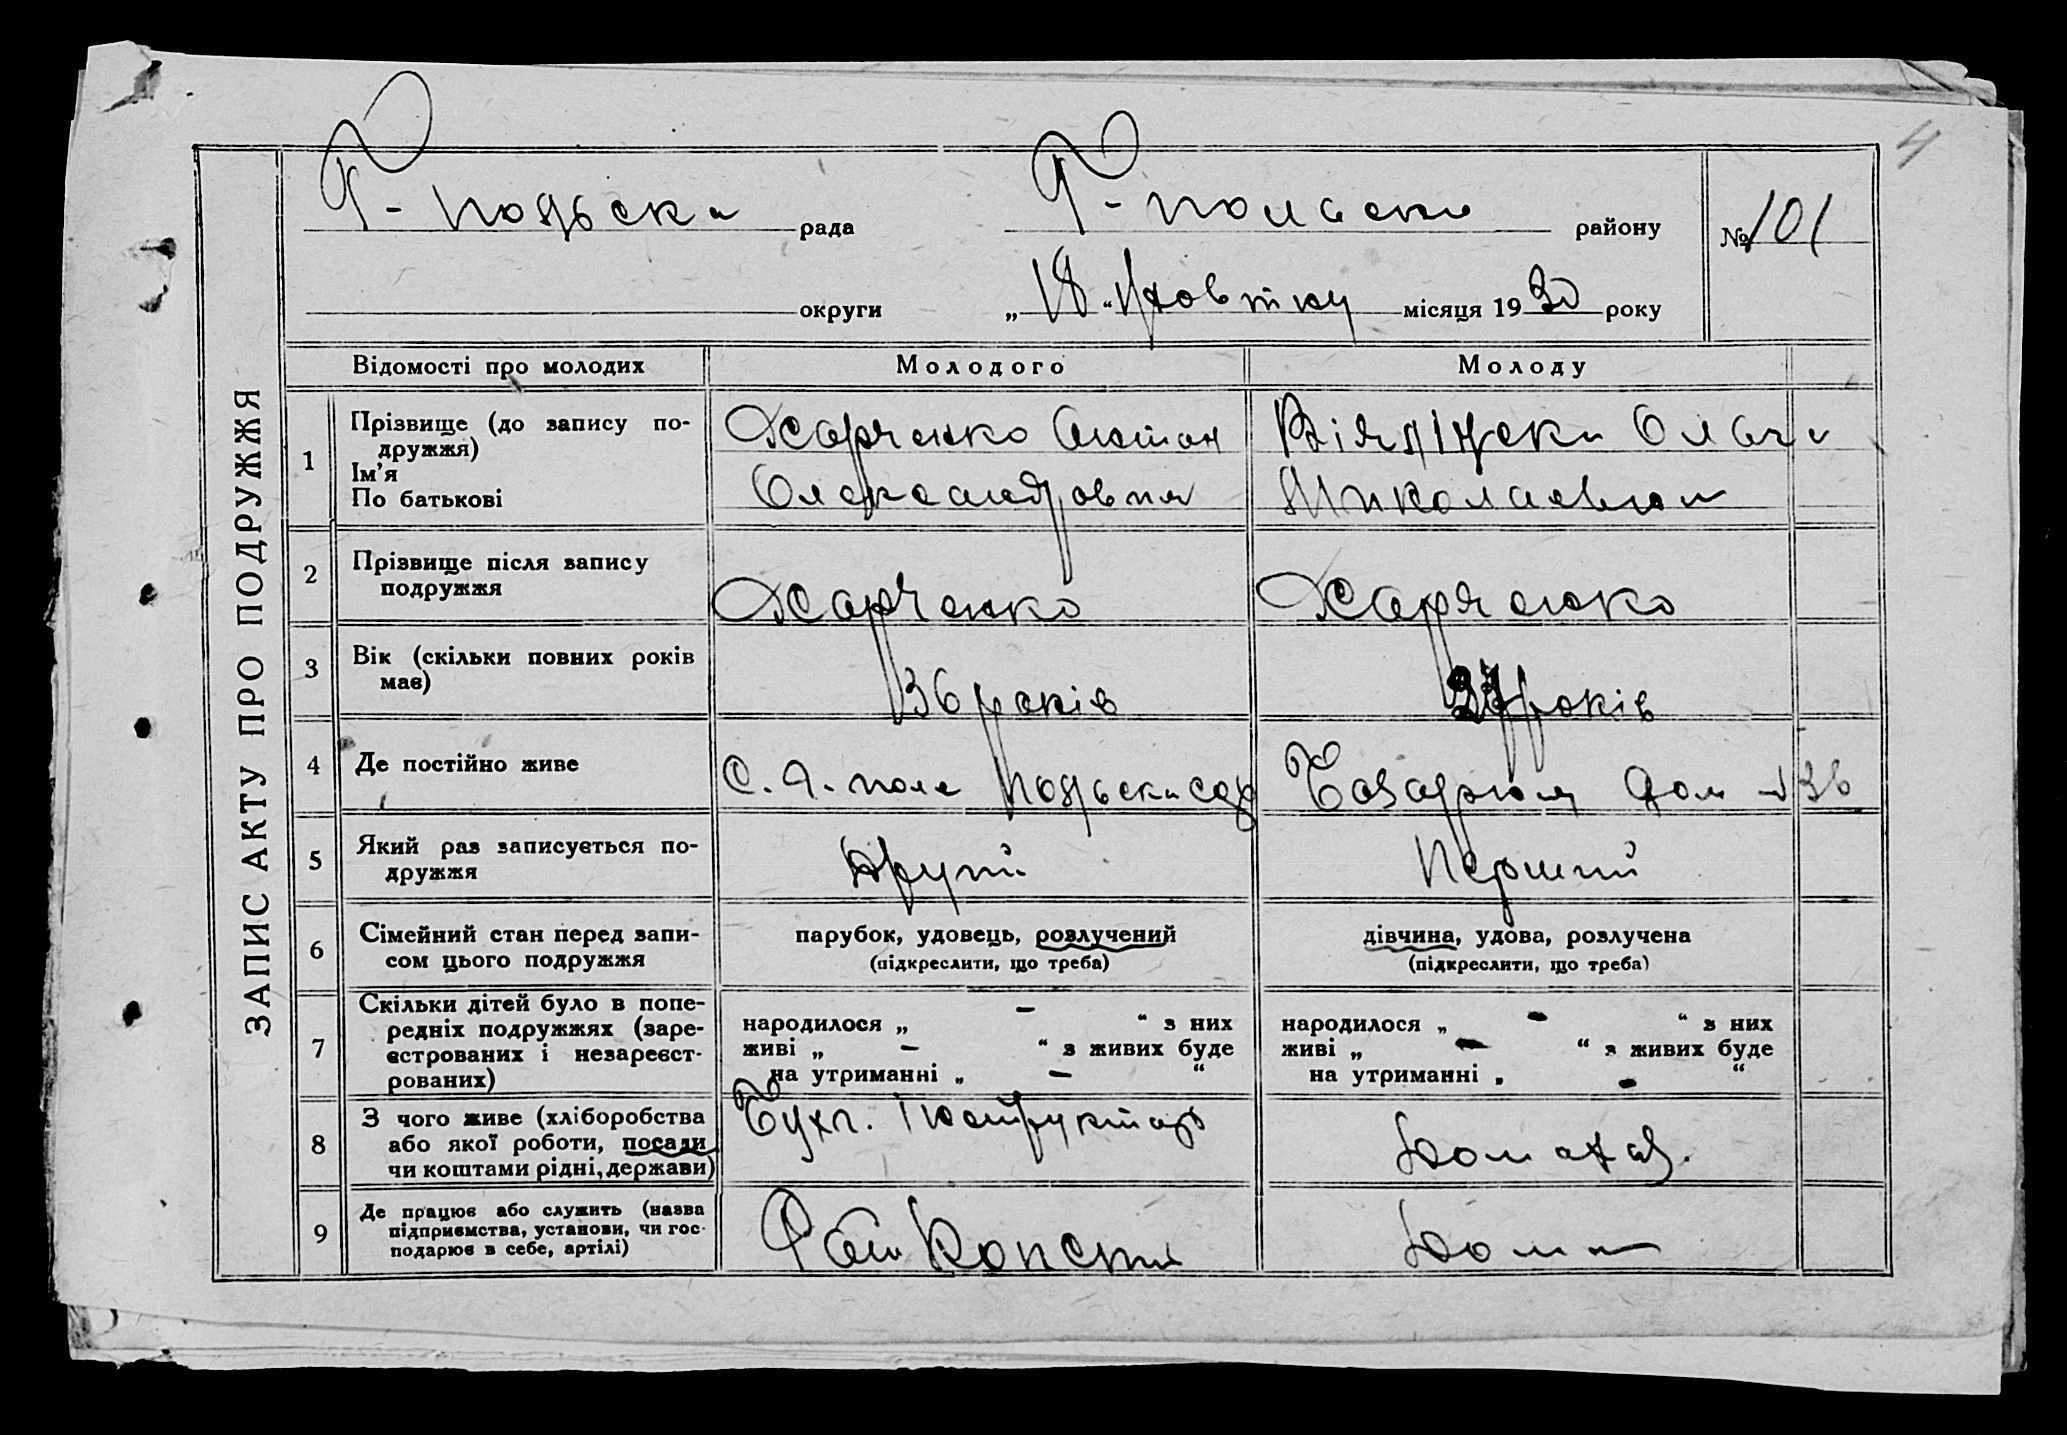 4
Г-польска рада Г-польско району №101
округи „18“ Жовтня місяця 1930 року
ЗАПИС АКТУ ПРО ПОДРУЖЖЯ
Відомості про молодих Молодого Молоду
1 Прізвище (до запису подружжя) Харченко Антон Ольги
Ім'я
По батькові Олександрович Миколаєвна
2 Прізвище після запису Харченко Харченко
подружжя
3 Вік (скільки повних років 36 років 27 років
має)
4 Де постійно живе с. поле дом 36
5 Який раз записується по- Другий Перший
дружжя
6 Сімейний стан перед запи- парубок, удовець, розлучений дівчина, удова, розлучена
сом цього подружжя (підкреслити, що треба) (підкреслити, що треба)
7 Скільки дітей було в попе- народилося „ - “ з них народилося „ - “ з них
редніх подружжях (заре- живі „ - “ з живих буде живі „ - “ з живих буде
єстрованих і незареєст- на утриманні „ - “ на утриманні „ - “
рованих)
8 З чого живе (хліборобства Бухг. Інструктор
або якої роботи, посади Домогав.
чи коштами рідні, держави)
9 Де працює або служить (назва
підприємства, установи, чи гос- Дома
подарює в себе, артілі)